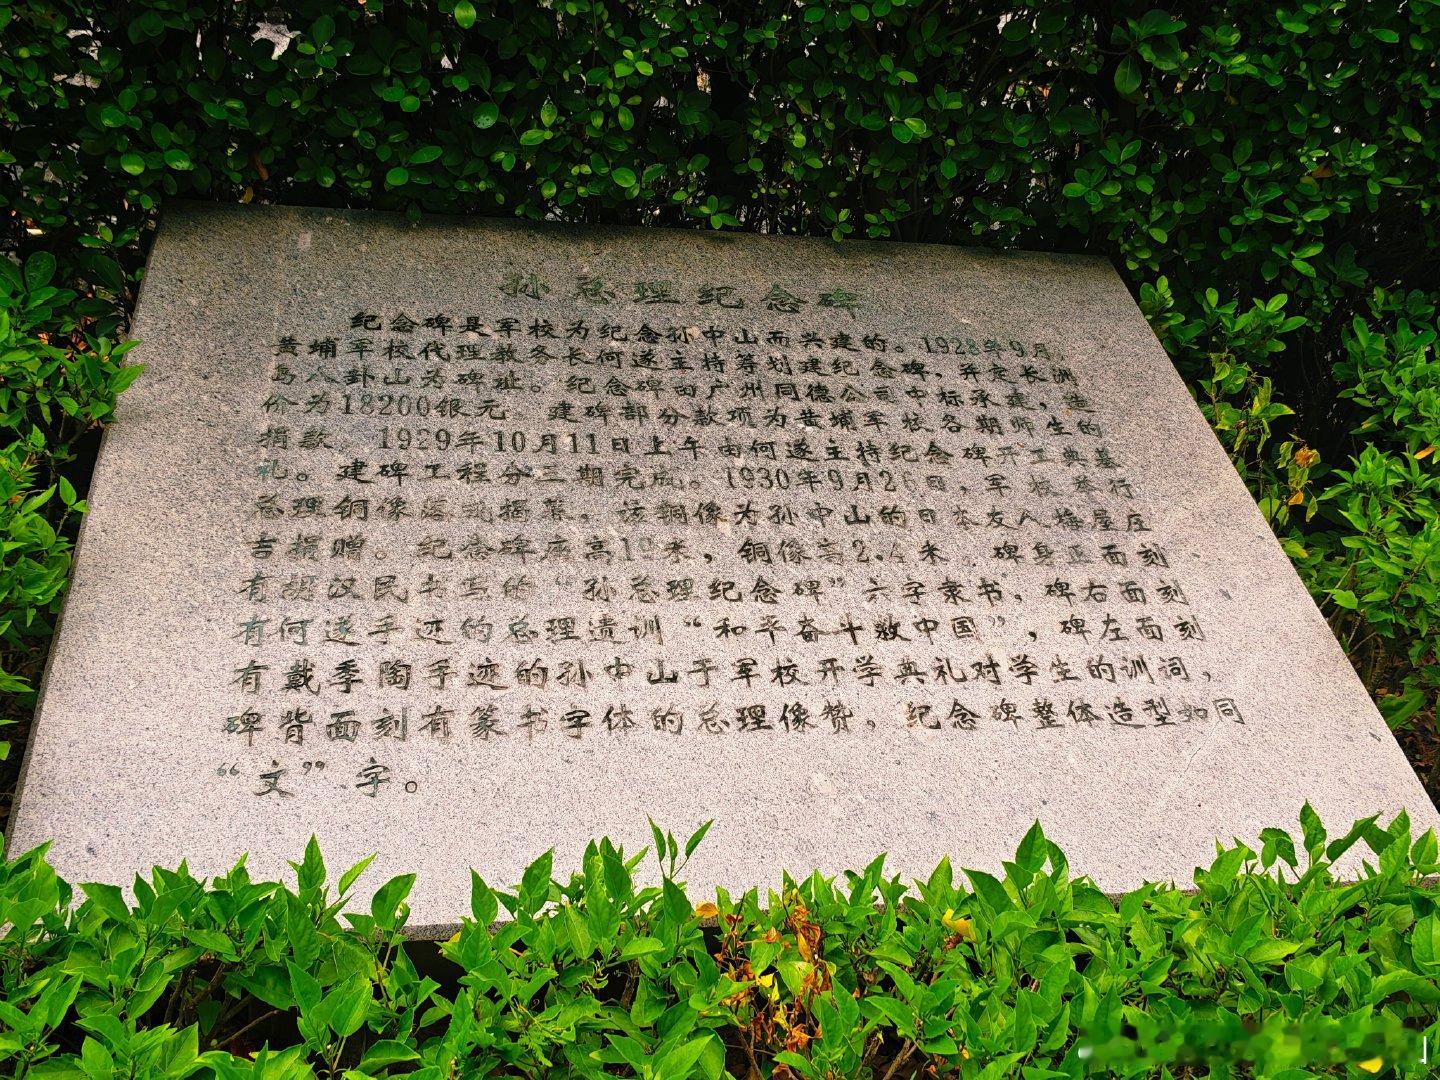 孙总理纪念碑
纪念碑是军校为纪念孙中山而兴建的。1928年9月,
黄埔军校代理教务长何遂主持筹划建纪念碑,并定长洲
岛八卦山为碑址。纪念碑由广州同德公司中标承建,造
价为18200银元。建碑部分款项为黄埔军校各期师生的
捐款。1929年10月11日上午由何遂主持纪念碑开工典基
礼。建碑工程分三期完成。1930年9月26日,军校举行
总理铜像落成揭幕,该铜像为孙中山的日本友人梅屋庄
吉捐赠。纪念碑座高 米,铜像高2. 米。碑身正面刻
有胡汉民书写的“孙总理纪念碑”六字隶书,碑右面刻
有何遂手迹的总理遗训“和平奋斗救中国”,碑左面刻
有戴季陶手迹的孙中山于军校开学典礼对学生的训词,
碑背面刻有篆书字体的总理像赞,纪念碑整体造型如同
“文”字。